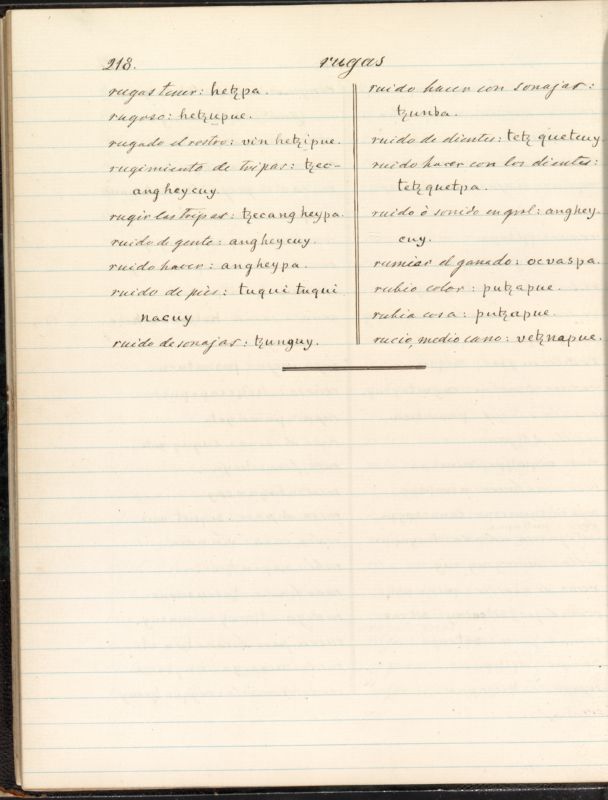 218. rugas
rugas tener: hetʒpa.
rugoso: hetʒupue.
rugado el rostro: vin hetʒipue.
rugimiento de tripas: tʒec-
angheycuy.
rugir las tripas: tʒecangheypa.
ruido de gente: angheycuy.
ruido hacer: angheypa.
ruido de piès: tuqui tuqui
nacuy
ruido de sonajas: tʒunguy.
ruido hacer con sonajas:
tʒunba.
ruido de dientes: tetʒ quetcuy
ruido hacer con los dientes:
tetʒquetpa.
ruido ò sonido en grol: anghey-
cuy.
rumiar el ganado: ocvaspa.
rubio color: putʒapue.
rubia cosa: putʒapue.
rucio, medio cano: vetʒnapue.